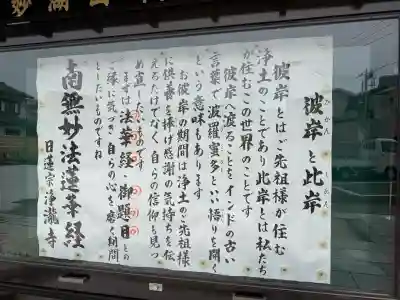 彼岸と此岸
ひがん
しがん
彼岸とはご先祖様が住む
浄土のことであり此岸とは私たち
が住むこの世界のことです
彼岸へ渡ることをインドの古い
言葉で波羅蜜多といい悟りを開く
という意味もあります
お彼岸の期間は浄土のご先祖様
に供養を捧げ感謝の気持ちを伝
えるだけでなく自らの信仰も見つ
め直し
まずは法華経・御題目との
ご縁に気づき自らの心を磨く期間
としたいものですね
南無妙法蓮華経
日蓮宗浄瀧寺